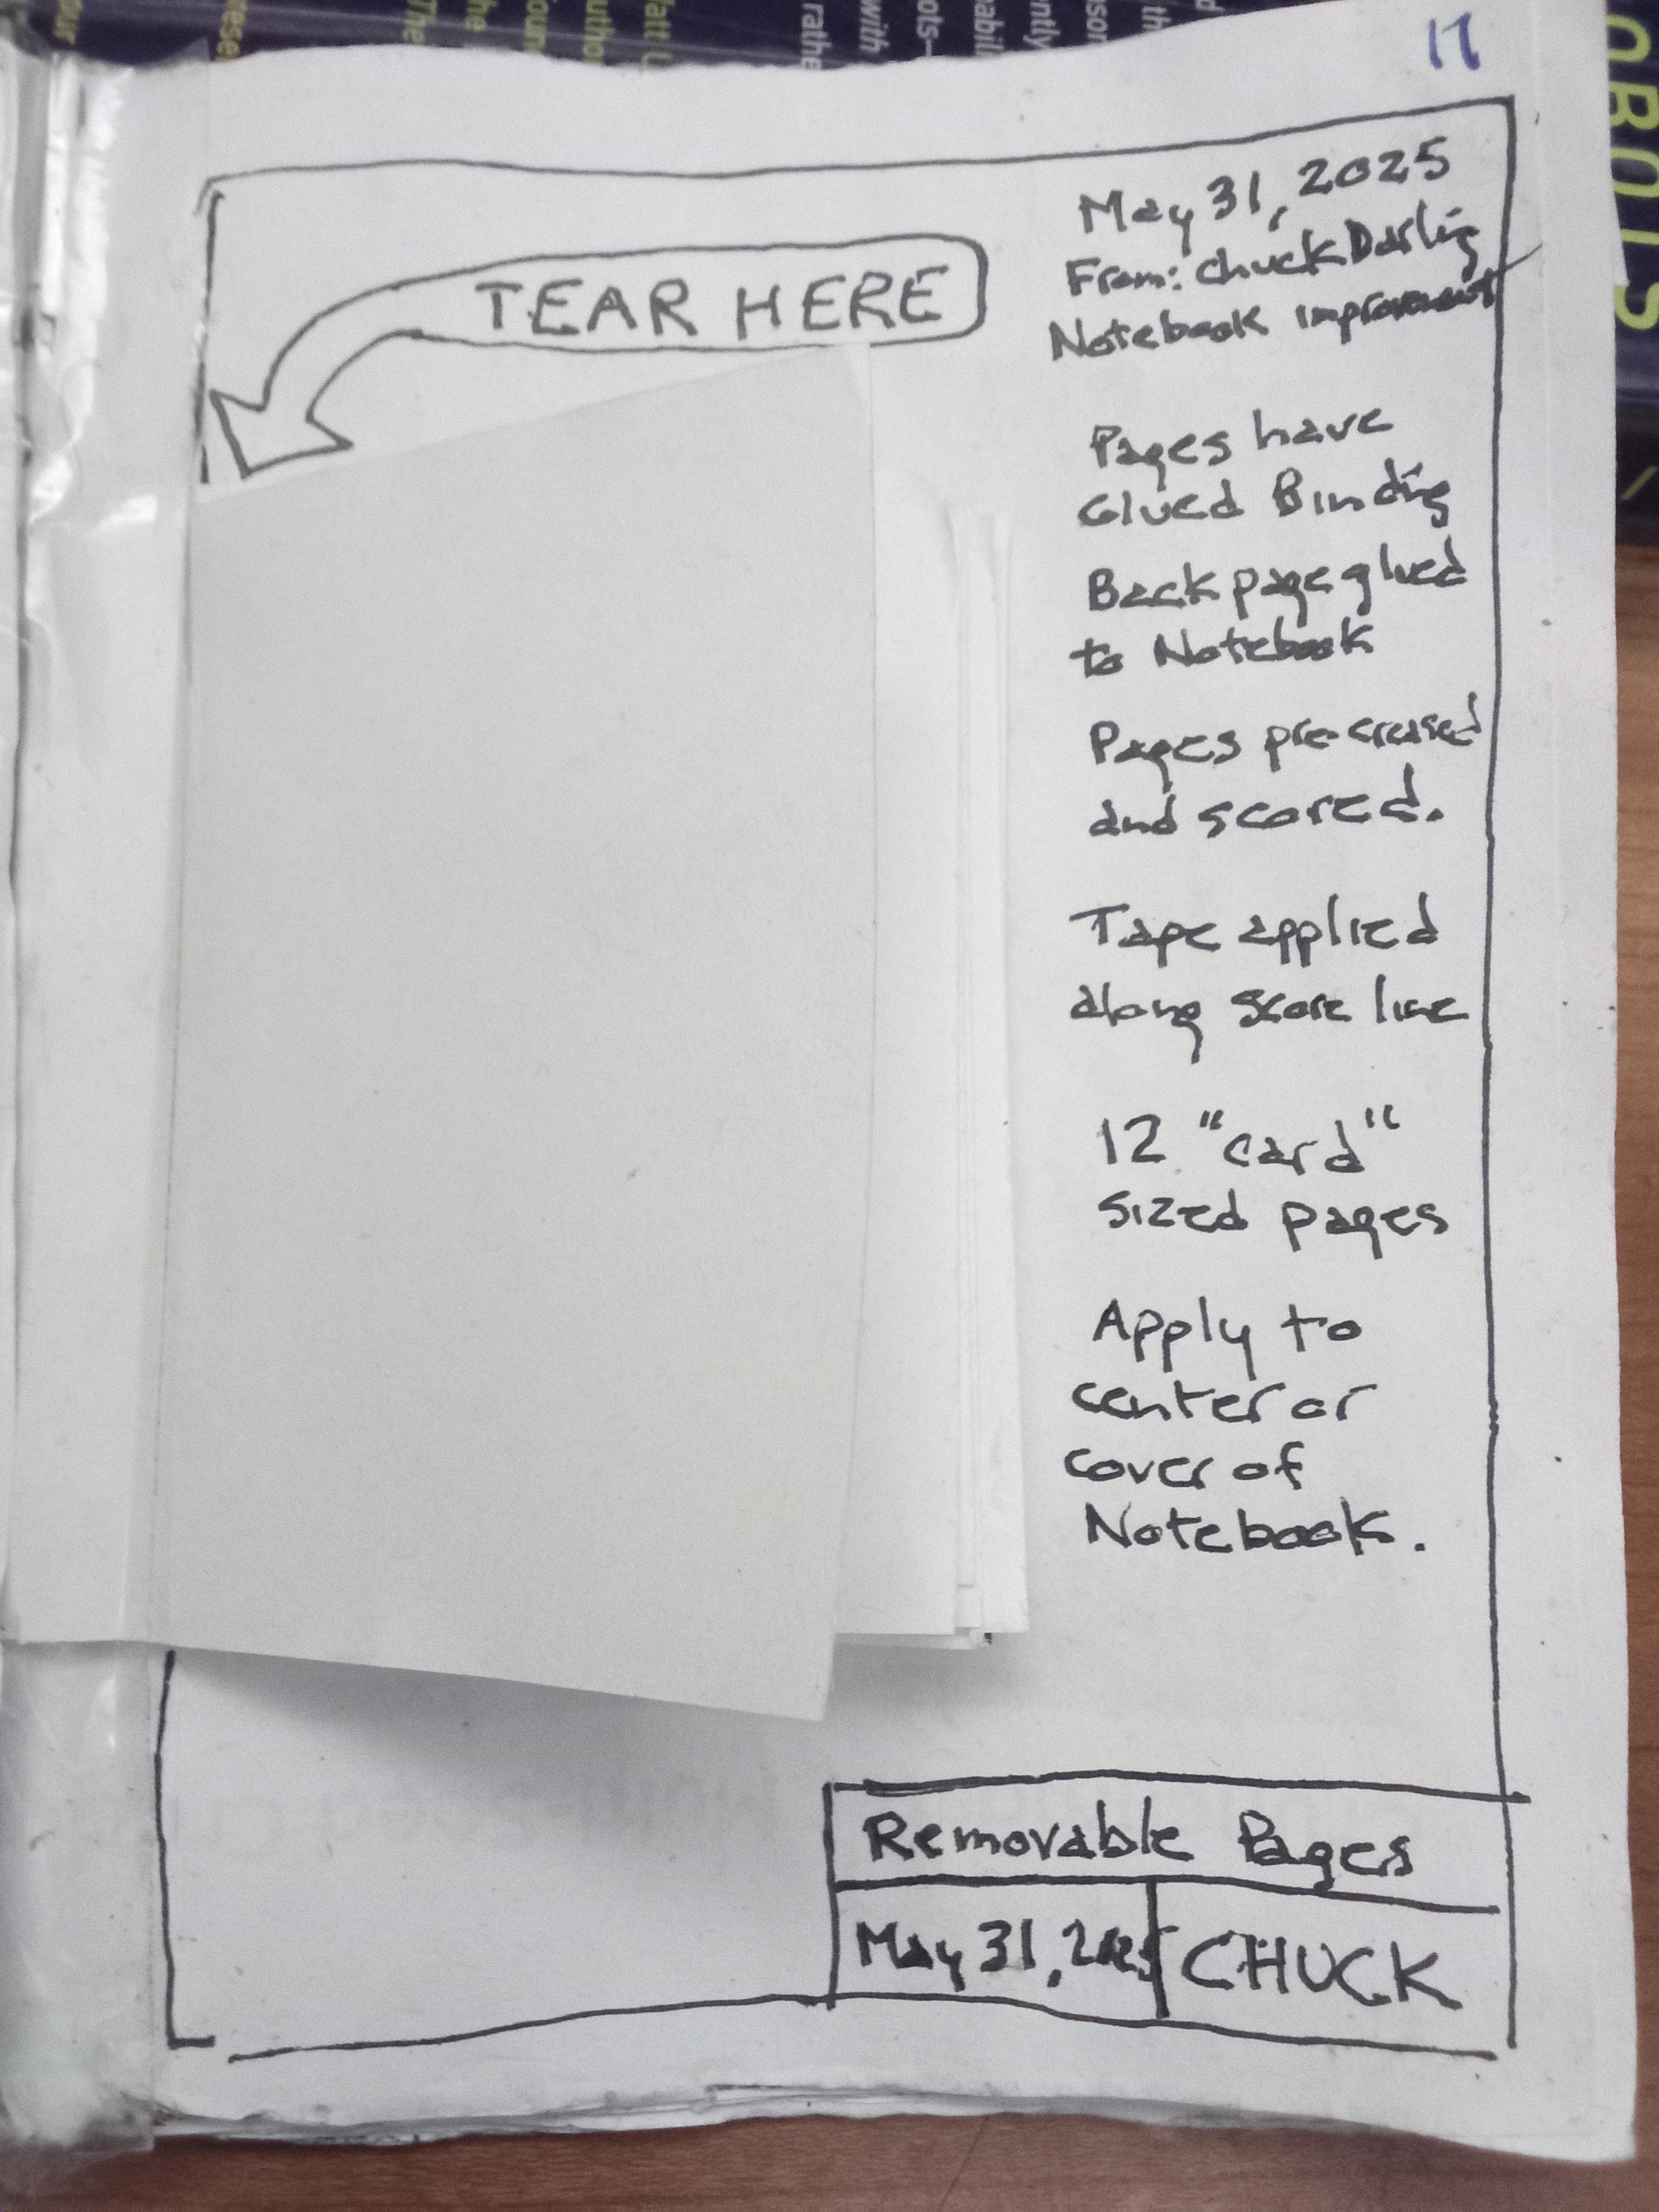 17
TEAR HERE
May 31, 2025
From: Chuck Darling
Notebook improvement
Pages have
Glued Binding
Back page glued
to Notebook
Pages pre-creased
and scored.
Tape applied
along score line
12 "card"
sized pages
Apply to
center or
cover of
Notebook.
Removable Pages
May 31, 2025
CHUCK
OBOTS
rathe
with
ots-
abili
ntly